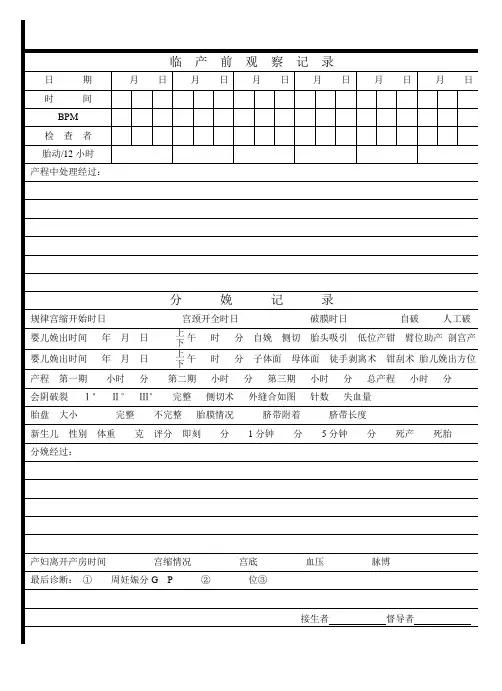 临 产 前 观 察 记 录
日 期 月 日 月 日 月 日 月 日 月 日 月 日
时 间
BPM
检 查 者
胎动/12 小时
产程中处理经过：
分 娩 记 录
规律宫缩开始时日 宫颈开全时日 破膜时日 自破 人工破
婴儿娩出时间 年 月 日 上下午 时 分 自娩 侧切 胎头吸引 低位产钳 臂位助产 剖宫产
婴儿娩出时间 年 月 日 上下午 时 分 子体面 母体面 徒手剥离术 钳刮术 胎儿娩出方位
产程 第一期 小时 分 第二期 小时 分 第三期 小时 分 总产程 小时 分
会阴破裂 Ⅰ° Ⅱ° Ⅲ° 完整 侧切术 外缝合如图 针数 失血量
胎盘 大小 完整 不完整 胎膜情况 脐带附着 脐带长度
新生儿 性别 体重 克 评分 即刻 分 1 分钟 分 5 分钟 分 死产 死胎
分娩经过：
产妇离开产房时间 宫缩情况 宫底 血压 脉博
最后诊断： ① 周妊娠分 G P ② 位③
接生者 督导者